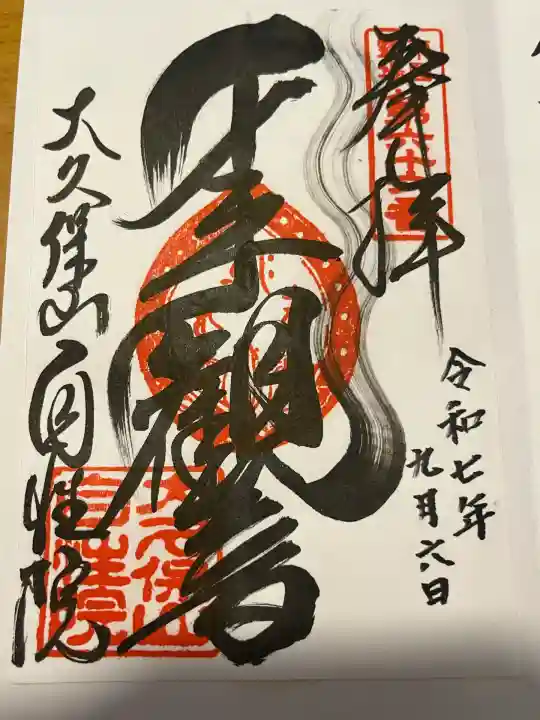 奉拝
令和七年
九月六日
聖観音
大久保山 自性院
大久保山
自性院